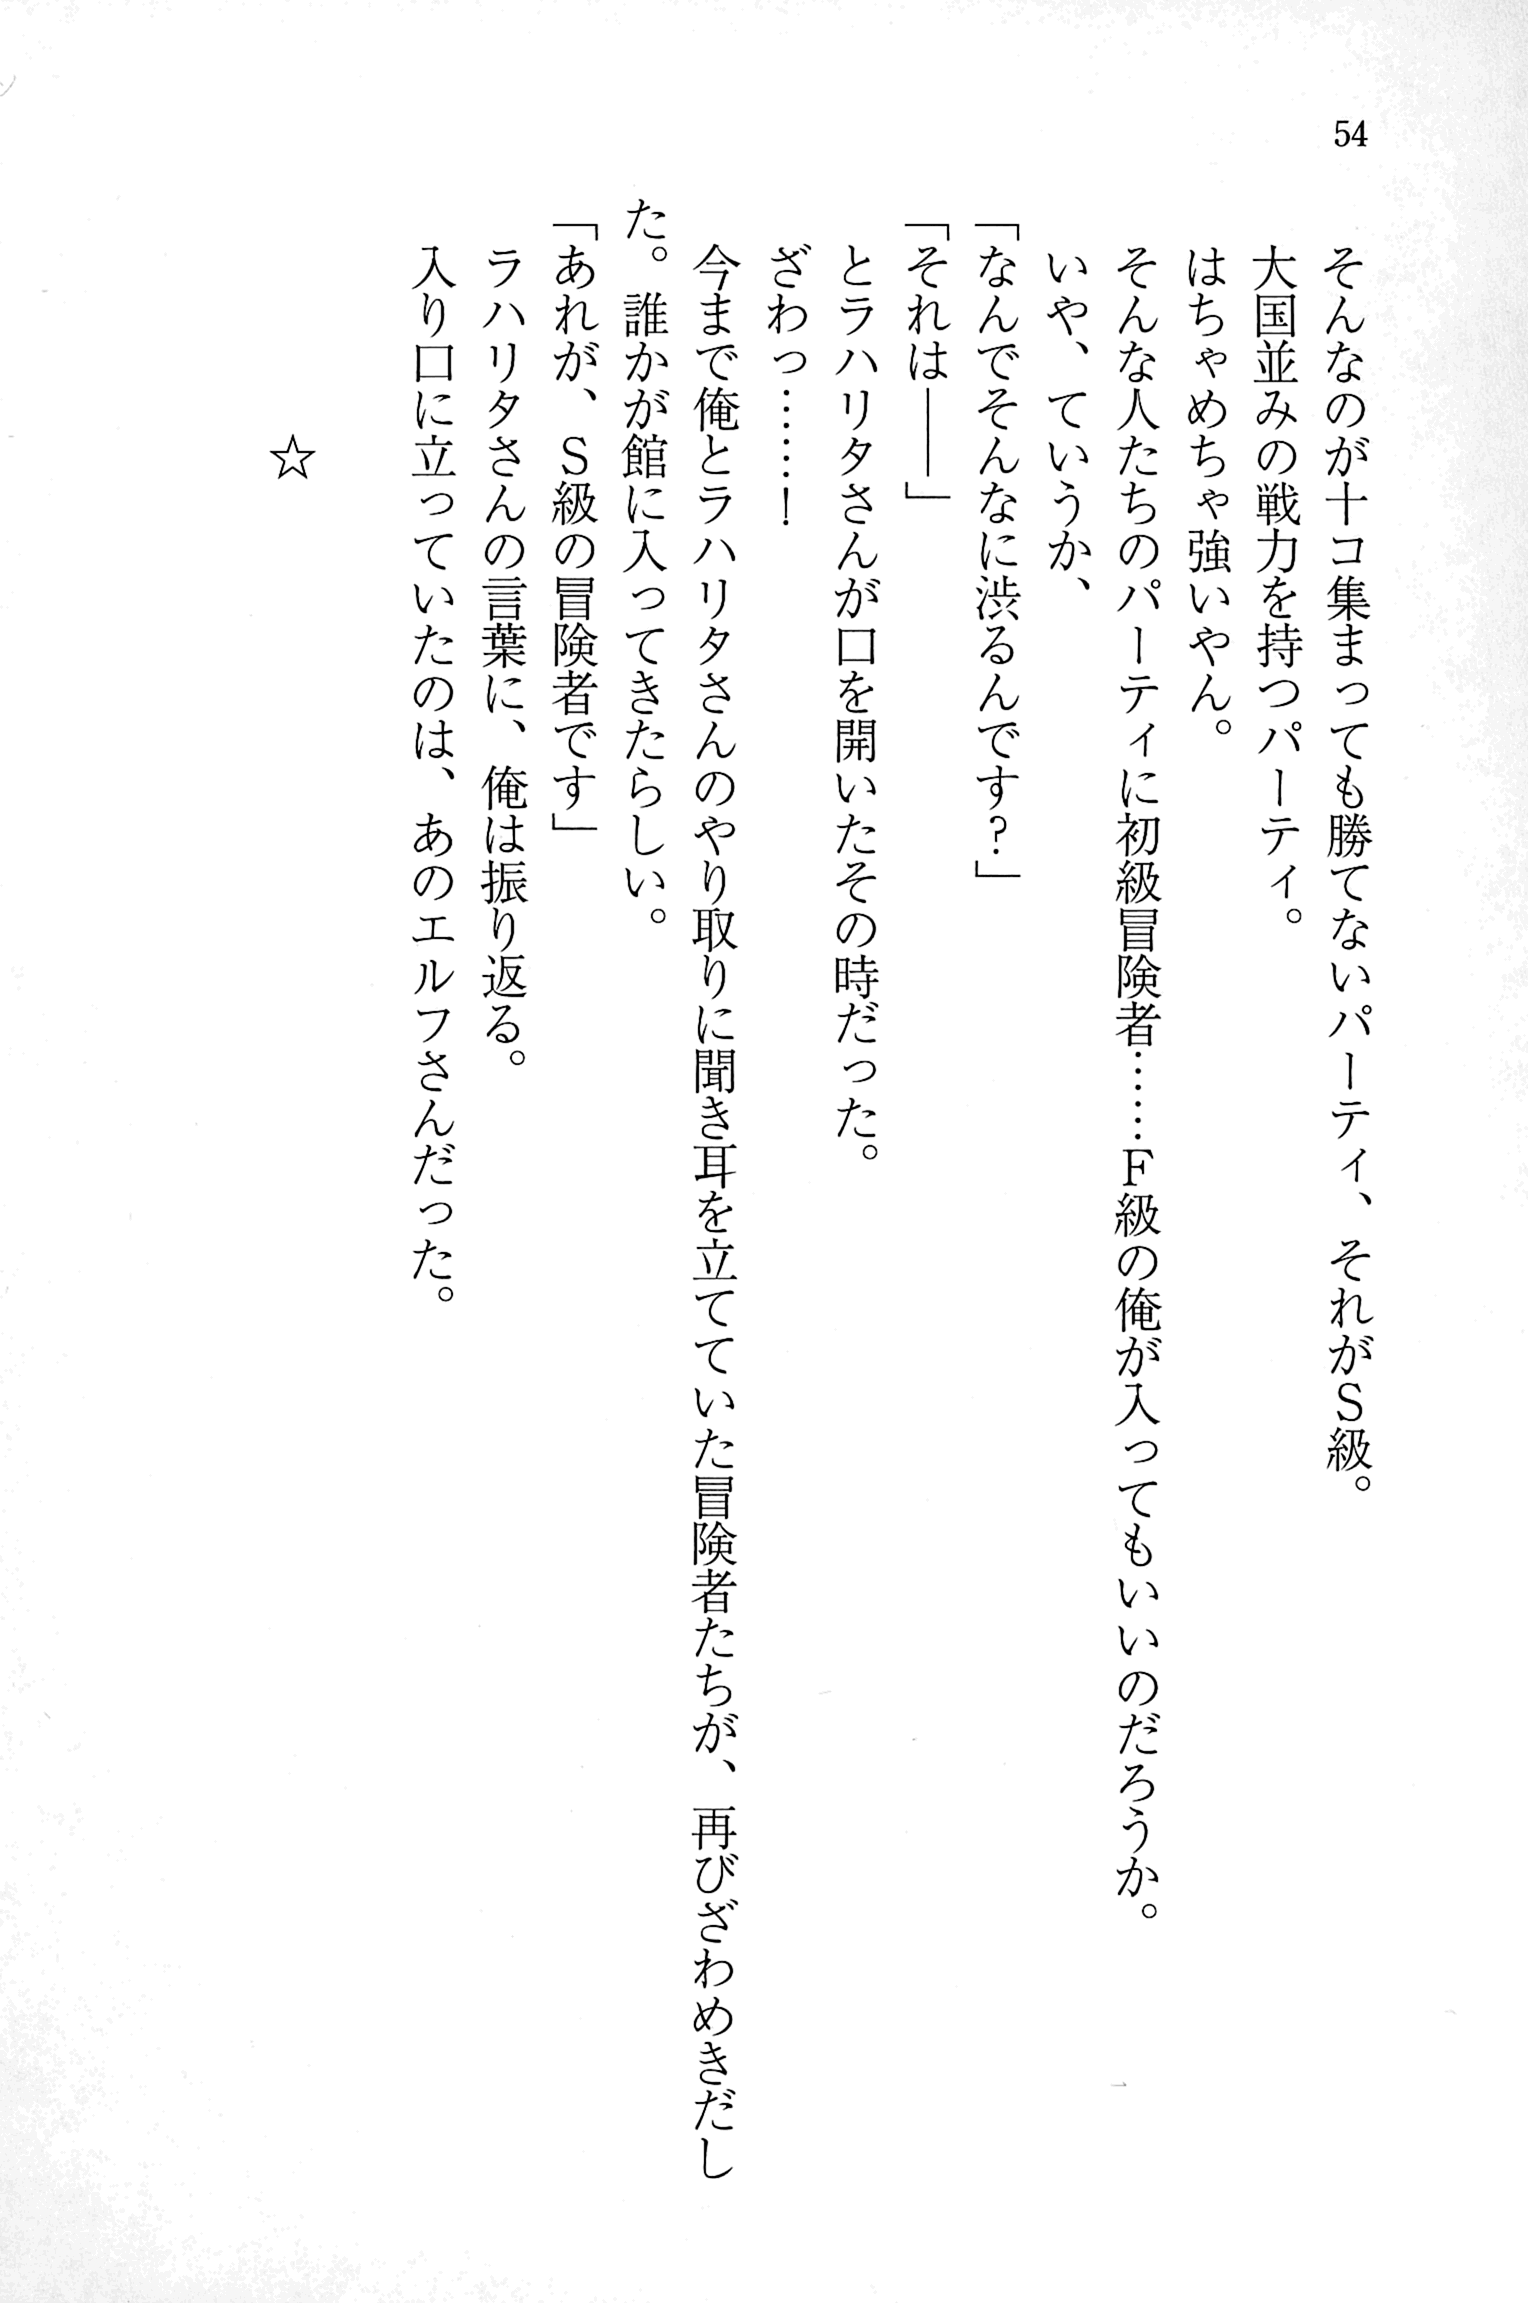 54
そんなのが十コ集まっても勝てないパーティ、それがＳ級。
大国並みの戦力を持つパーティ。
はちゃめちゃ強いやん。
そんな人たちのパーティに初級冒険者……Ｆ級の俺が入ってもいいのだろうか。
いや、ていうか、
「なんでそんなに渋るんです？」
「それは――」
とラハリタさんが口を開いたその時だった。
ざわっ……！
今まで俺とラハリタさんのやり取りに聞き耳を立てていた冒険者たちが、再びざわめきだし
た。誰かが館に入ってきたらしい。
「あれが、Ｓ級の冒険者です」
ラハリタさんの言葉に、俺は振り返る。
入り口に立っていたのは、あのエルフさんだった。
☆